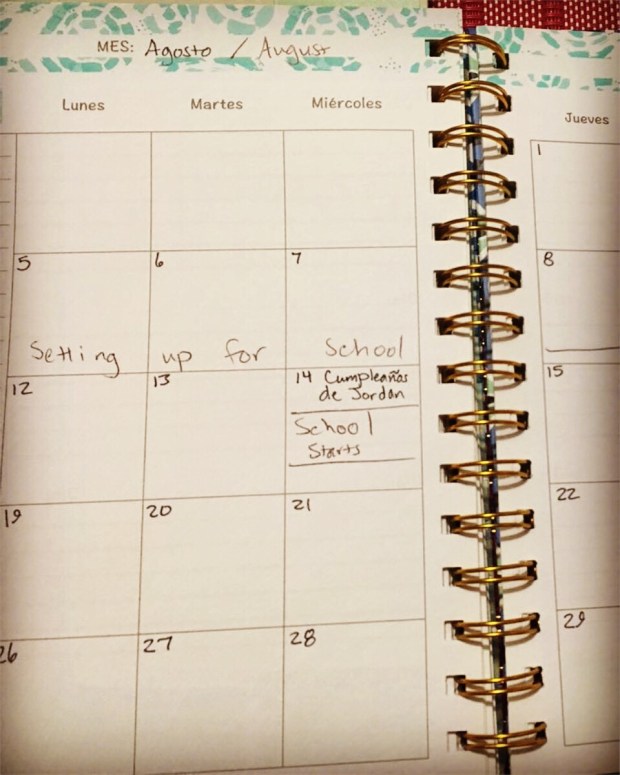 MES: Agosto / August
Lunes Martes Miércoles Jueves
1
5 6 7 8
Setting up for School
12 13 14 Cumpleaños 15
de Jordan
School
Starts
19 20 21 22
26 27 28 29